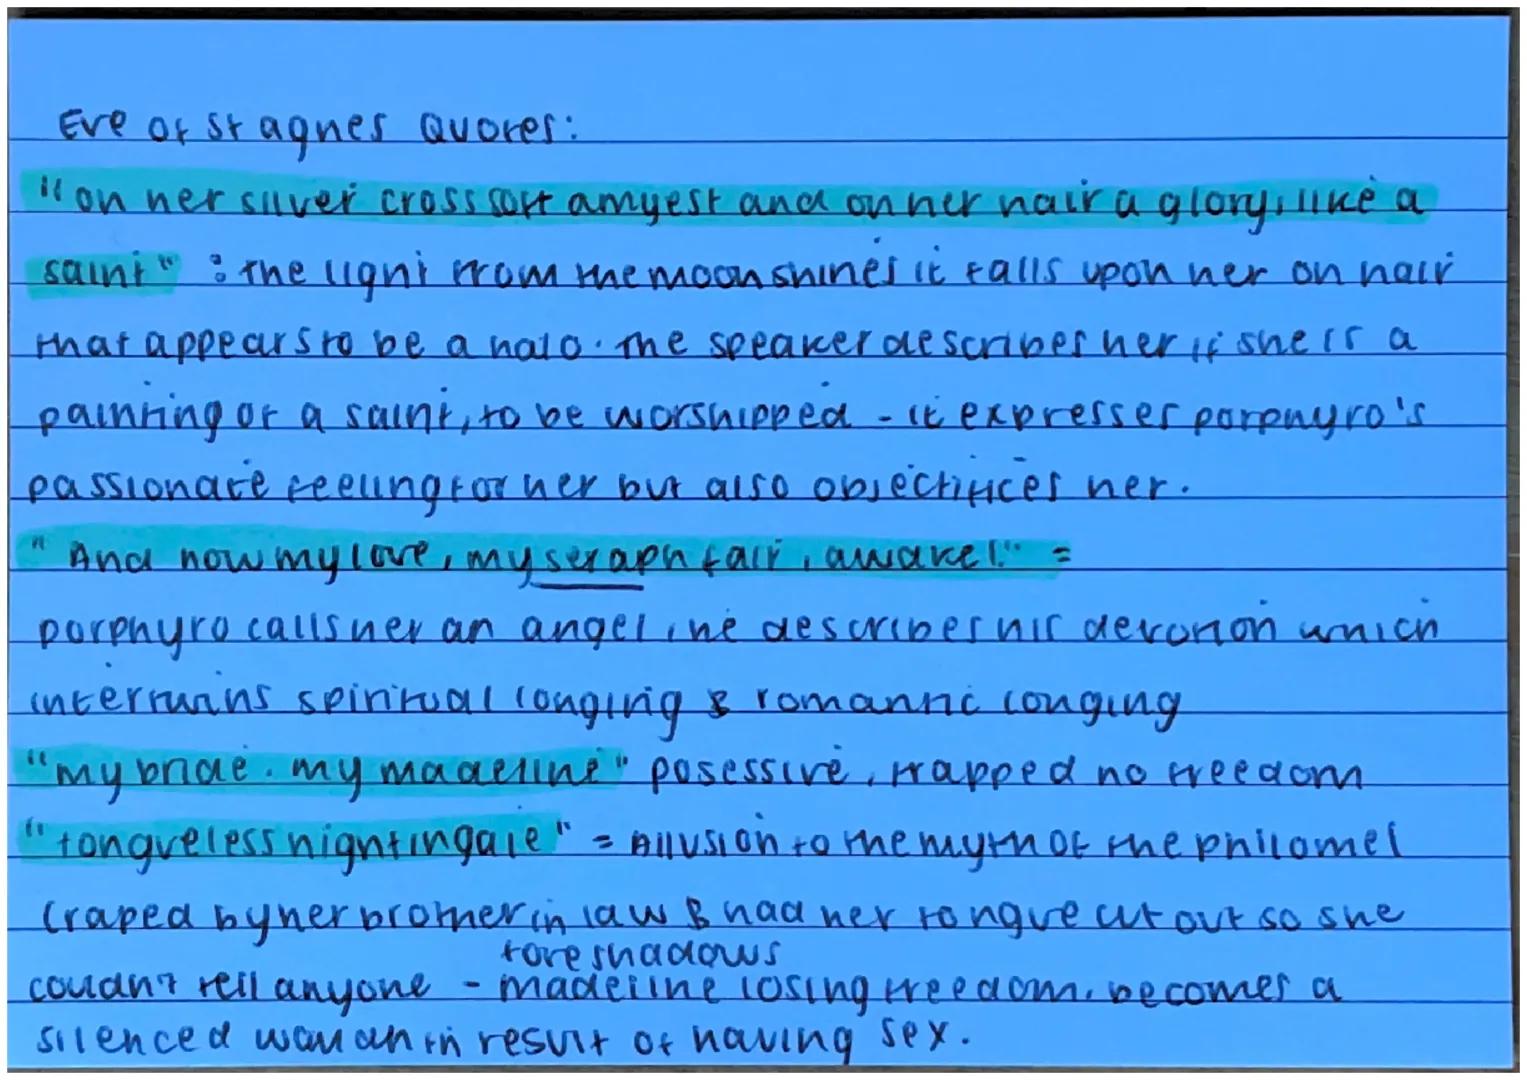 Eve of St agnes Quotes:
"on her silver cross soft amyest and on her hair a glory, like a
saint" : The light from the moon shines it falls upon her on hair
that appears to be a halo. The speaker describes her if she is a
painting of a saint, to be worshipped - it expresses porphyro's
passionate feeling for her but also objectifices her.
" And now my love, my seraph fair, awake!" =
porphyro calls her an angel, he describes his devotion which
intertwins spiritual longing & romantic longing
"my bride. my madeline" posessive, trapped no freedom
"tongueless nightingale" = Allusion to the myth of the philomel
(raped by her brother in law & had her tongue cut out so she
couldn't tell anyone - foreshadows madeline losing freedom. becomes a
silenced woman in result of having sex.